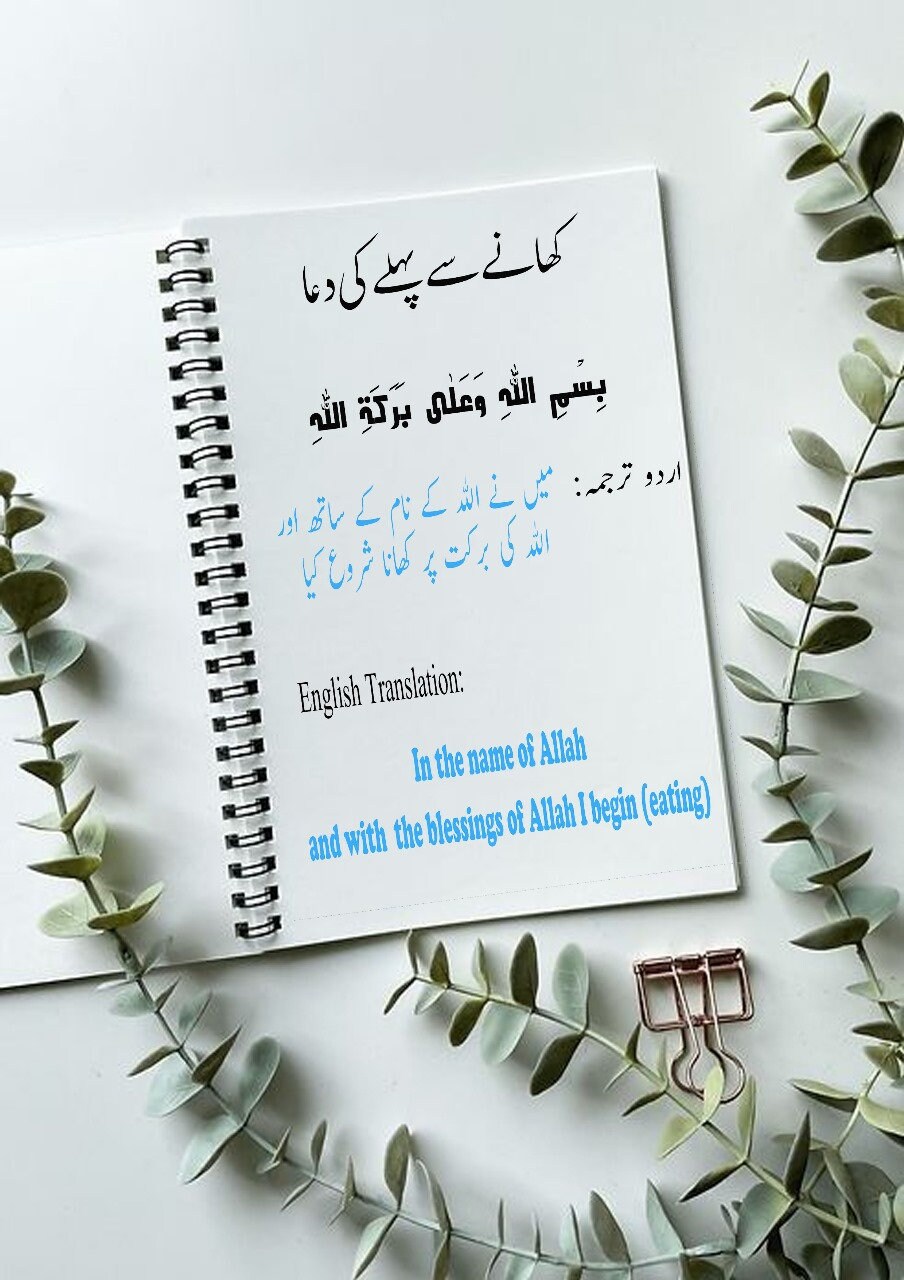 کھانے سے پہلے کی دعا
بِسْمِ اللّٰهِ وَعَلٰى بَرَكَةِ اللّٰهِ
اردو ترجمہ: میں نے اللہ کے نام کے ساتھ اور
اللہ کی برکت پر کھانا شروع کیا
English Translation:
In the name of Allah
and with the blessings of Allah I begin (eating)